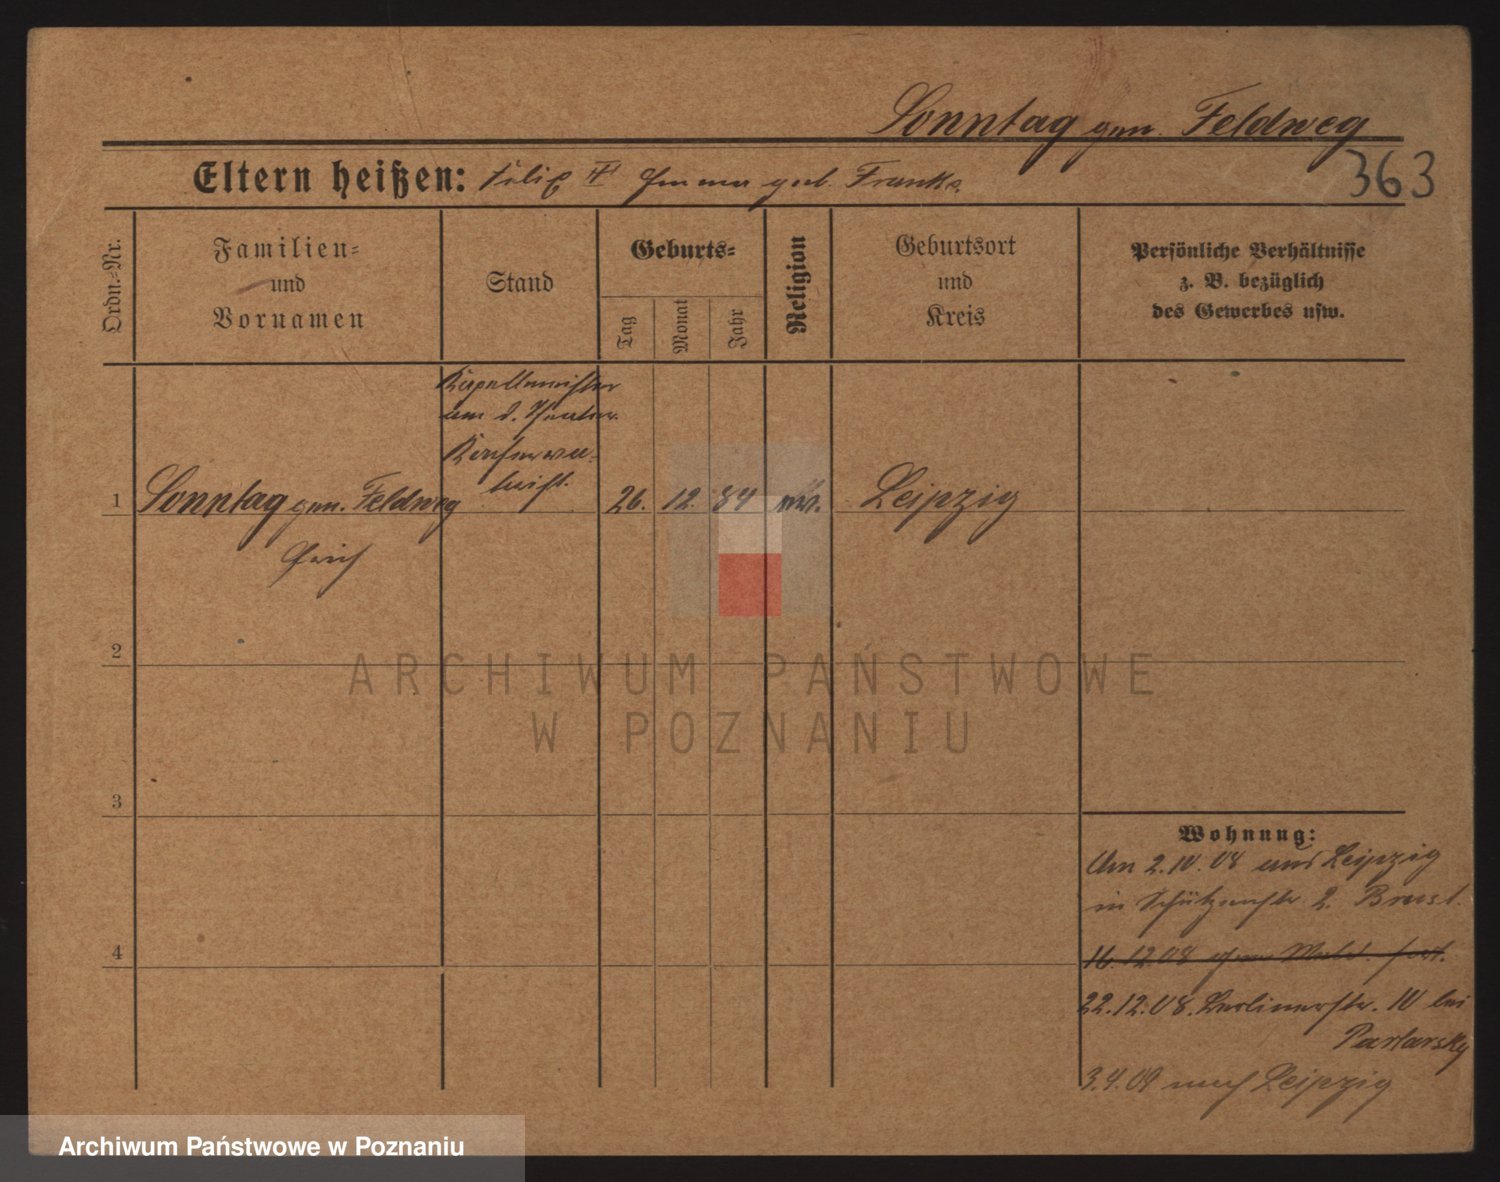 Sonntag gen. Feldweg
363
Eltern heißen: Felix # Emma geb. Franke.
Ordn.-Nr.
Familien-
und
Vornamen
Stand
Geburts-
Tag
Monat
Jahr
Religion
Geburtsort
und
Kreis
Persönliche Verhältnisse
z. B. bezüglich
des Gewerbes usw.
Kapellmeister
am d. Theater.
1 Sonntag gen. Feldweg 26. 12. 84 Leipzig
Erich
2
3
4
Wohnung:
Am 2.10.08 aus Leipzig
in Schützenstr. 2.
16.12.08
22.12.08. Berlinerstr. 10 bei
3.4.09 nach Leipzig
ARCHIWUM PAŃSTWOWE
W POZNANIU
Archiwum Państwowe w Poznaniu